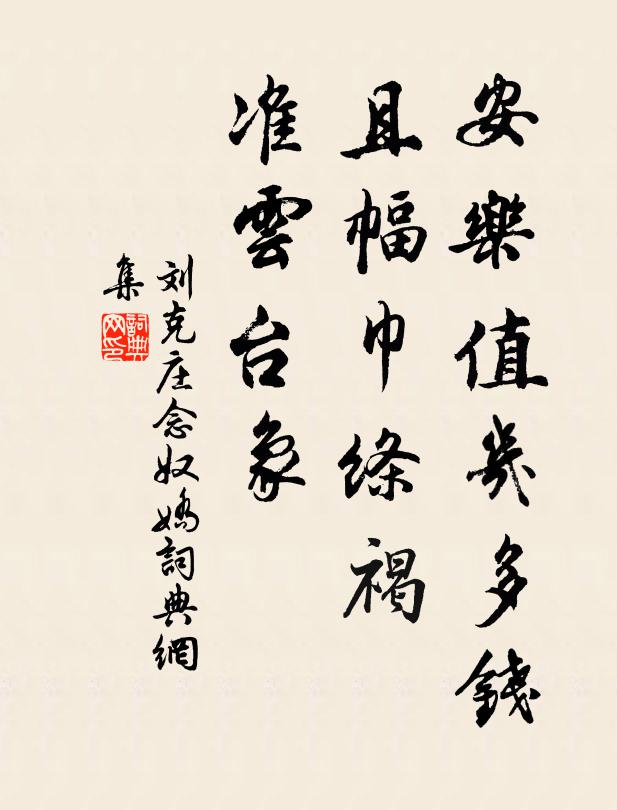 安樂值幾多錢
且幅巾絛褐
准雲台象
刘克庄念奴嬌詞典網
集
詞典網印